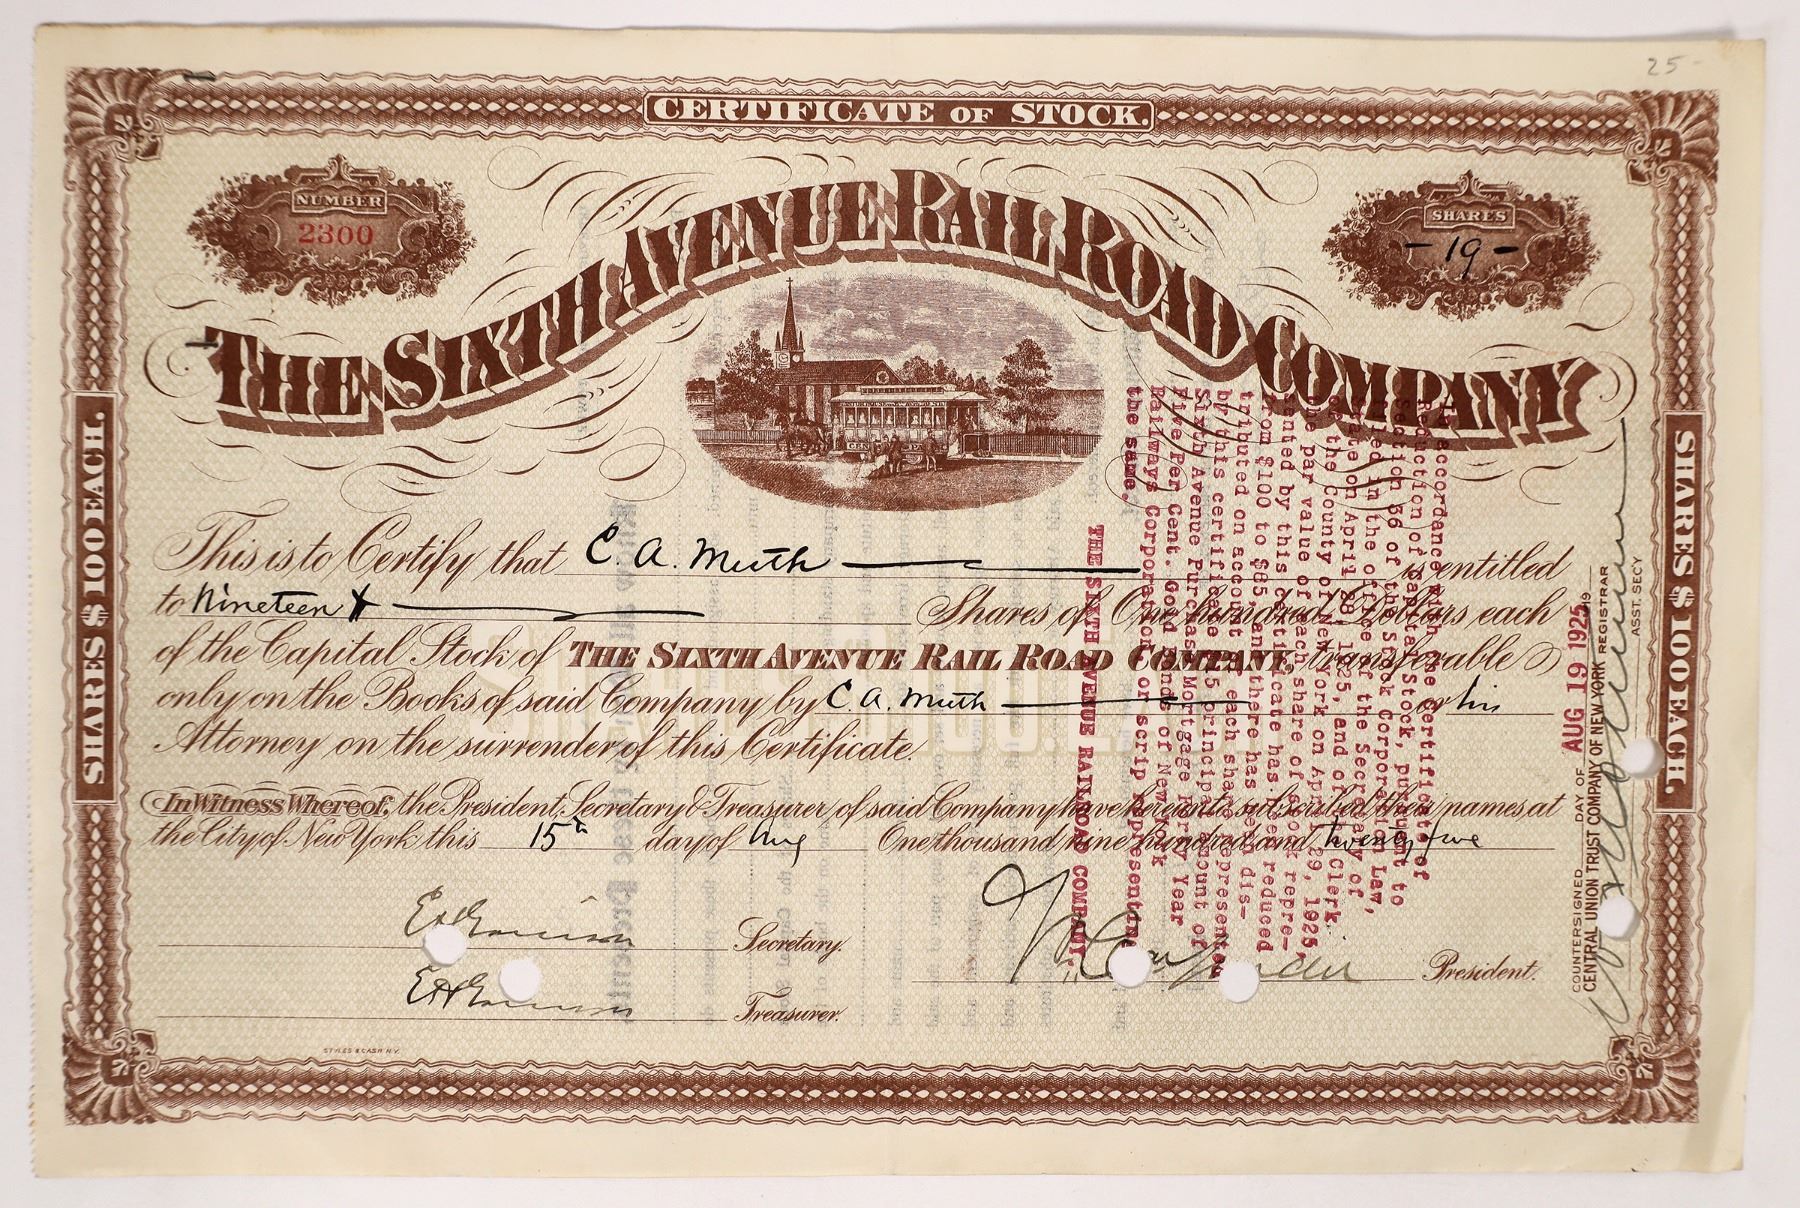 25-
CERTIFICATE OF STOCK.
NUMBER
2300
SHARES
- 19 -
THE SIXTH AVENUE RAIL ROAD COMPANY
SHARES $100 EACH.
SHARES $100 EACH.
This is to Certify that C. A. Muth is entitled
to Nineteen Shares of One hundred Dollars each
of the Capital Stock of THE SIXTH AVENUE RAIL ROAD COMPANY, transferable
only on the Books of said Company by C. A. Muth or his
Attorney on the surrender of this Certificate.
SHARES $100. EACH.
In Witness Whereof, the President, Secretary & Treasurer, of said Company have hereunto subscribed their names, at
the City of New York this 15th day of Aug One thousand nine hundred and twenty five
Secretary.
President.
Treasurer.
STYLES & CASH N.Y.
In accordance with the Certificate of
Reduction of Capital Stock, pursuant to
Section 36 of the Stock Corporation Law,
filed in the office of the Secretary of
State on April 28, 1925, and of the Clerk
of the County of New York on April 29, 1925,
the par value of each share of stock repre-
sented by this certificate has been reduced
from $100 to $85, and there has been dis-
tributed on account of each share represented
by this certificate $15 principal amount of
Sixth Avenue Purchase Mortgage Forty Year
Five Per Cent. Gold Bonds of New York
Railways Corporation, or scrip representing
the same.
THE SIXTH AVENUE RAILROAD COMPANY.
COUNTERSIGNED DAY OF 19
AUG 19 1925
CENTRAL UNION TRUST COMPANY OF NEW YORK REGISTRAR
ASST. SECY